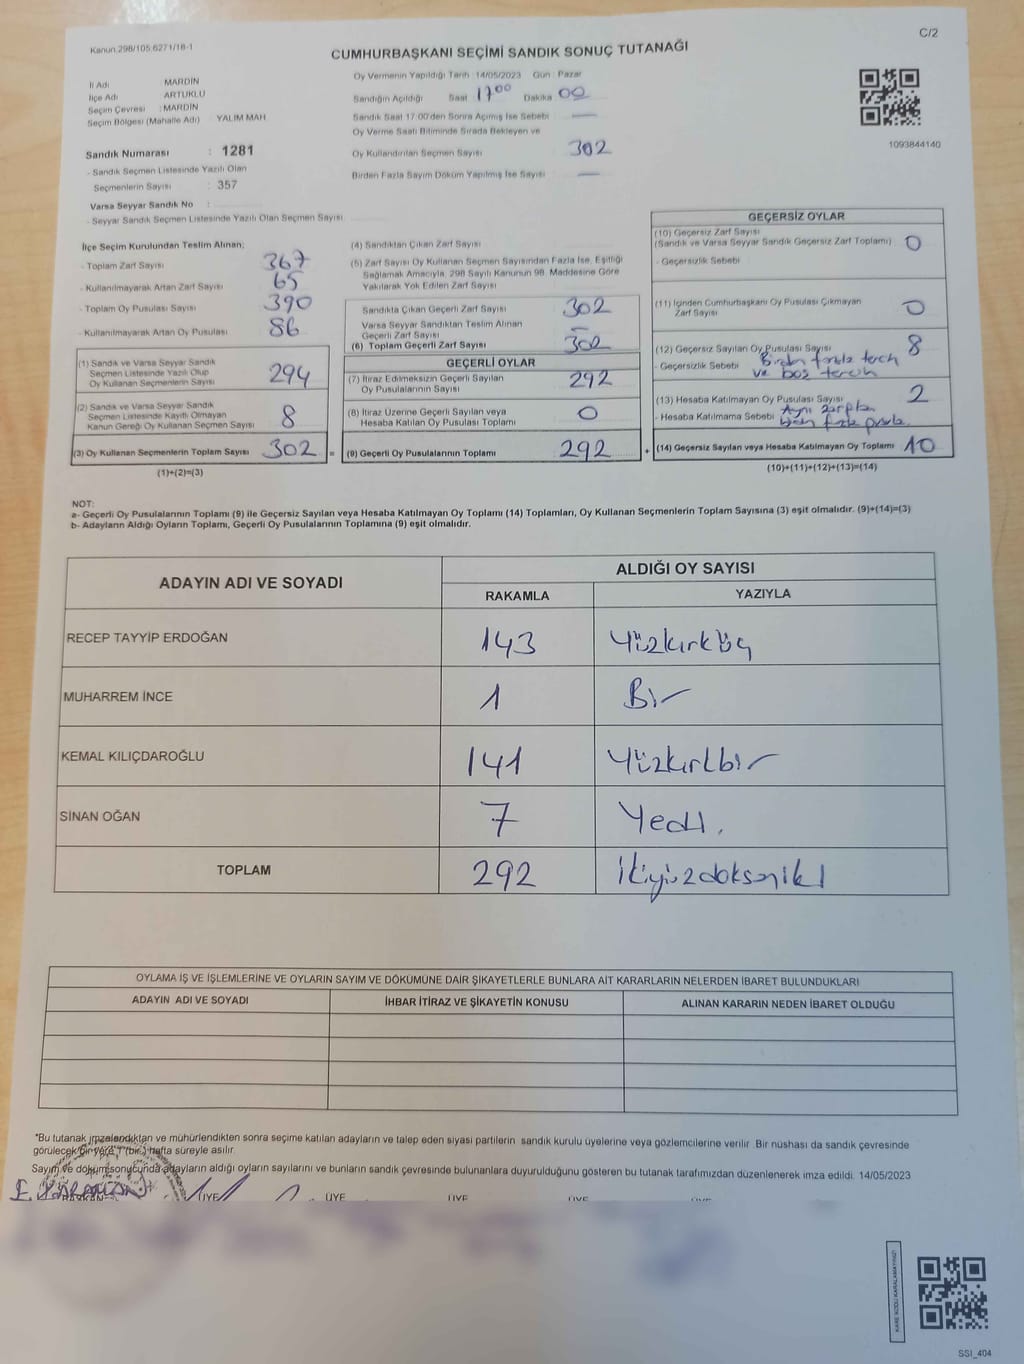 Kanun.298/105.6271/18-1
C/2
CUMHURBAŞKANI SEÇİMİ SANDIK SONUÇ TUTANAĞI
İl Adı : MARDİN
İlçe Adı : ARTUKLU
Seçim Çevresi : MARDİN
Seçim Bölgesi (Mahalle Adı) : YALIM MAH
Sandık Numarası : 1281
- Sandık Seçmen Listesinde Yazılı Olan
Seçmenlerin Sayısı : 357
Varsa Seyyar Sandık No :
- Seyyar Sandık Seçmen Listesinde Yazılı Olan Seçmen Sayısı
Oy Vermenin Yapıldığı Tarih : 14/05/2023 Gün : Pazar
Sandığın Açıldığı Saat 17 00 Dakika 00
Sandık Saat 17:00'den Sonra Açımış İse Sebebi —
Oy Verme Saati Bitiminde Sırada Bekleyen ve
Oy Kullandırılan Seçmen Sayısı 302
Birden Fazla Sayım Döküm Yapılmış İse Sayısı —
1093844140
İlçe Seçim Kurulundan Teslim Alınan;
- Toplam Zarf Sayısı 367
- Kullanılmayarak Artan Zarf Sayısı 65
- Toplam Oy Pusulası Sayısı 390
- Kullanılmayarak Artan Oy Pusulası 86
(1) Sandık ve Varsa Seyyar Sandık
Seçmen Listesinde Yazılı Olup
Oy Kullanan Seçmenlerin Sayısı 294
(2) Sandık ve Varsa Seyyar Sandık
Seçmen Listesinde Kayıtlı Olmayan
Kanun Gereği Oy Kullanan Seçmen Sayısı 8
(3) Oy Kullanan Seçmenlerin Toplam Sayısı 302 =
(1)+(2)=(3)
(4) Sandıktan Çıkan Zarf Sayısı
(5) Zarf Sayısı Oy Kullanan Seçmen Sayısından Fazla İse, Eşitliği
Sağlamak Amacıyla, 298 Sayılı Kanunun 98. Maddesine Göre
Yakılarak Yok Edilen Zarf Sayısı
Sandıkta Çıkan Geçerli Zarf Sayısı 302
Varsa Seyyar Sandıktan Teslim Alınan
Geçerli Zarf Sayısı —
(6) Toplam Geçerli Zarf Sayısı 302
GEÇERLİ OYLAR
(7) İtiraz Edilmeksizin Geçerli Sayılan
Oy Pusulalarının Sayısı 292
(8) İtiraz Üzerine Geçerli Sayılan veya
Hesaba Katılan Oy Pusulası Toplamı 0
(9) Geçerli Oy Pusulalarının Toplamı 292 +
GEÇERSİZ OYLAR
(10) Geçersiz Zarf Sayısı
(Sandık ve Varsa Seyyar Sandık Geçersiz Zarf Toplamı) 0
- Geçersizlik Sebebi
(11) İçinden Cumhurbaşkanı Oy Pusulası Çıkmayan
Zarf Sayısı 0
(12) Geçersiz Sayılan Oy Pusulası Sayısı 8
- Geçersizlik Sebebi Birden fazla tercih
ve boş tercih
(13) Hesaba Katılmayan Oy Pusulası Sayısı 2
- Hesaba Katılmama Sebebi Aynı zarftan
birden fazla pusula.
(14) Geçersiz Sayılan veya Hesaba Katılmayan Oy Toplamı 10
(10)+(11)+(12)+(13)=(14)
NOT:
a- Geçerli Oy Pusulalarının Toplamı (9) ile Geçersiz Sayılan veya Hesaba Katılmayan Oy Toplamı (14) Toplamları, Oy Kullanan Seçmenlerin Toplam Sayısına (3) eşit olmalıdır. (9)+(14)=(3)
b- Adayların Aldığı Oyların Toplamı, Geçerli Oy Pusulalarının Toplamına (9) eşit olmalıdır.
ADAYIN ADI VE SOYADI
ALDIĞI OY SAYISI
RAKAMLA YAZIYLA
RECEP TAYYİP ERDOĞAN 143 Yüzkırküç
MUHARREM İNCE 1 Bir
KEMAL KILIÇDAROĞLU 141 Yüzkırkbir
SİNAN OĞAN 7 Yedi.
TOPLAM 292 ikiyüzdoksaniki
OYLAMA İŞ VE İŞLEMLERİNE VE OYLARIN SAYIM VE DÖKÜMÜNE DAİR ŞİKAYETLERLE BUNLARA AİT KARARLARIN NELERDEN İBARET BULUNDUKLARI
ADAYIN ADI VE SOYADI İHBAR İTİRAZ VE ŞİKAYETİN KONUSU ALINAN KARARIN NEDEN İBARET OLDUĞU
*Bu tutanak imzalandıktan ve mühürlendikten sonra seçime katılan adayların ve talep eden siyasi partilerin sandık kurulu üyelerine veya gözlemcilerine verilir. Bir nüshası da sandık çevresinde
görülecek bir yere 1 (bir) hafta süreyle asılır.
Sayım ve döküm sonucunda adayların aldığı oyların sayılarını ve bunların sandık çevresinde bulunanlara duyurulduğunu gösteren bu tutanak tarafımızdan düzenlenerek imza edildi. 14/05/2023
BAŞKAN ÜYE ÜYE ÜYE ÜYE ÜYE
KARE KODU KARALAMAYINIZ!
SSI_404